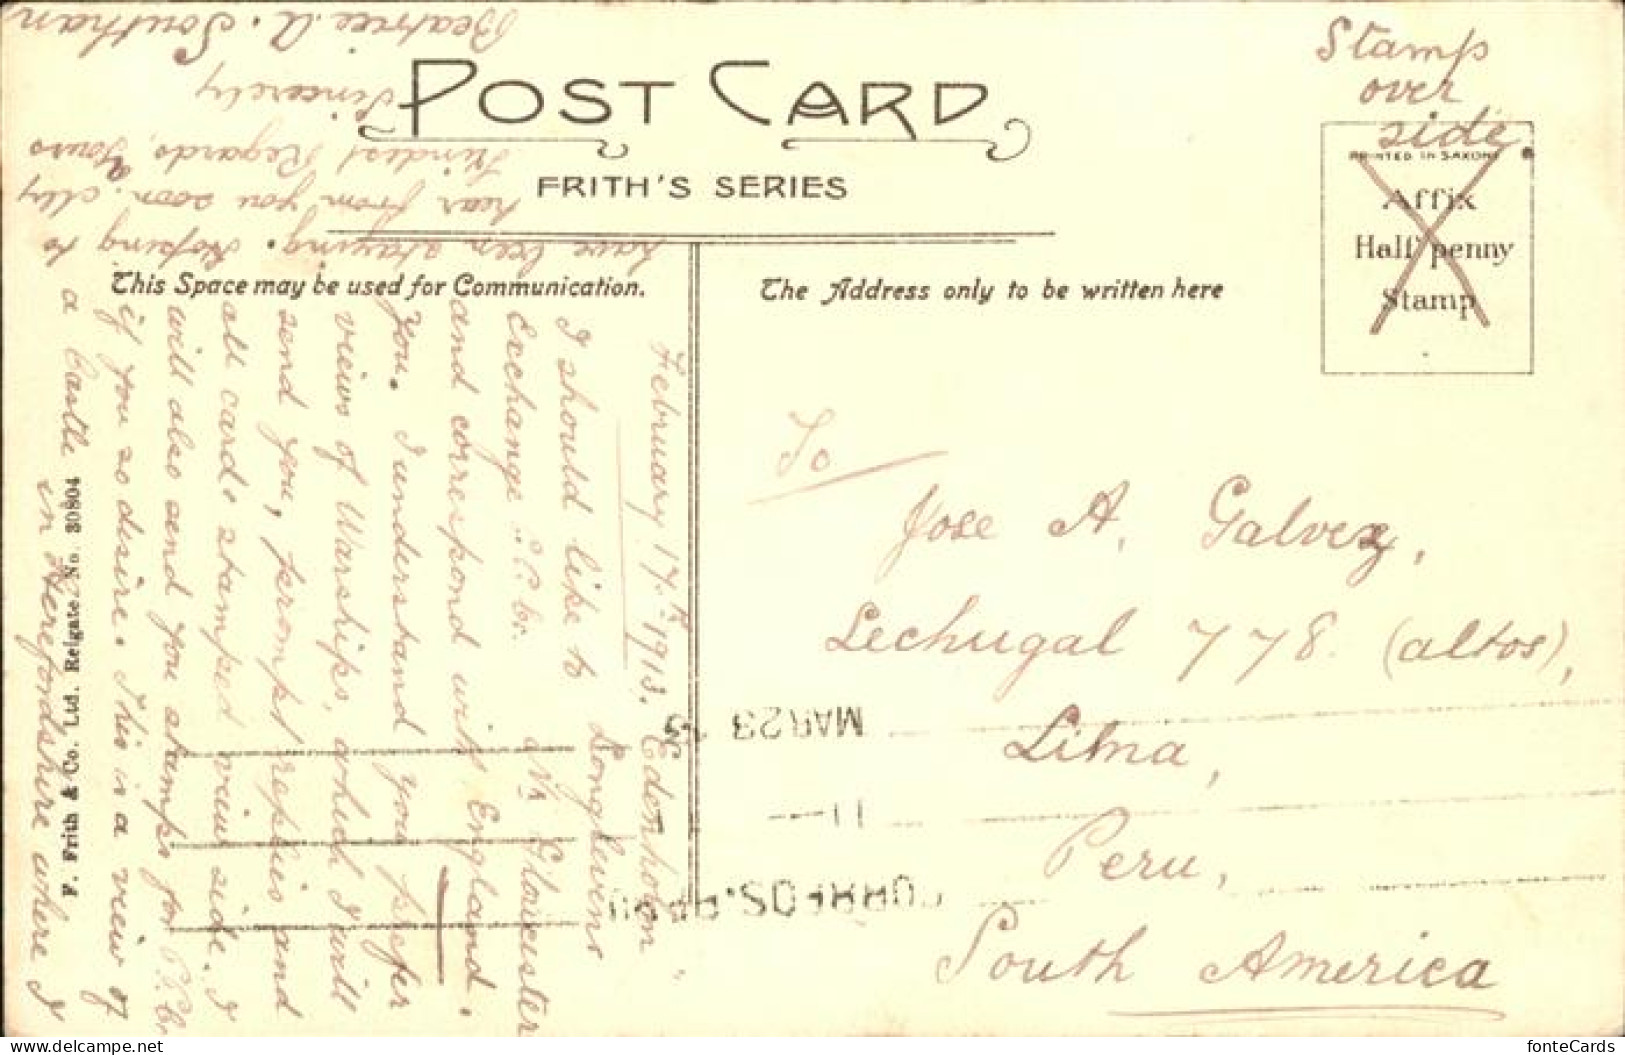 Stamp
over
side.
POST CARD
FRITH'S SERIES
PRINTED IN SAXONY
Affix
Half penny
Stamp
This Space may be used for Communication.
The Address only to be written here
To
Jose A. Galvez,
Lechugal 778. (altos),
Lima,
Peru,
South America
MAR 23
11—
CORREOS
F. Frith & Co. Ltd. Reigate. No. 30804
"Edenholm"
Longlevens
Nr Gloucester
England.
February 17th 1913.
I should like to
Exchange P.Cs.
and correspond with
you. I understand you prefer
views of Warships, which I will
send you, prompt replies and
all cards stamped view side. I
will also send you stamps for P.Cs
if you so desire. This is a view of
a Castle in Herefordshire where I
have been staying. Hoping to
hear from you soon. My
Kindest Regards, Yours
Sincerely
Beatrice A. Southan
fonteCards